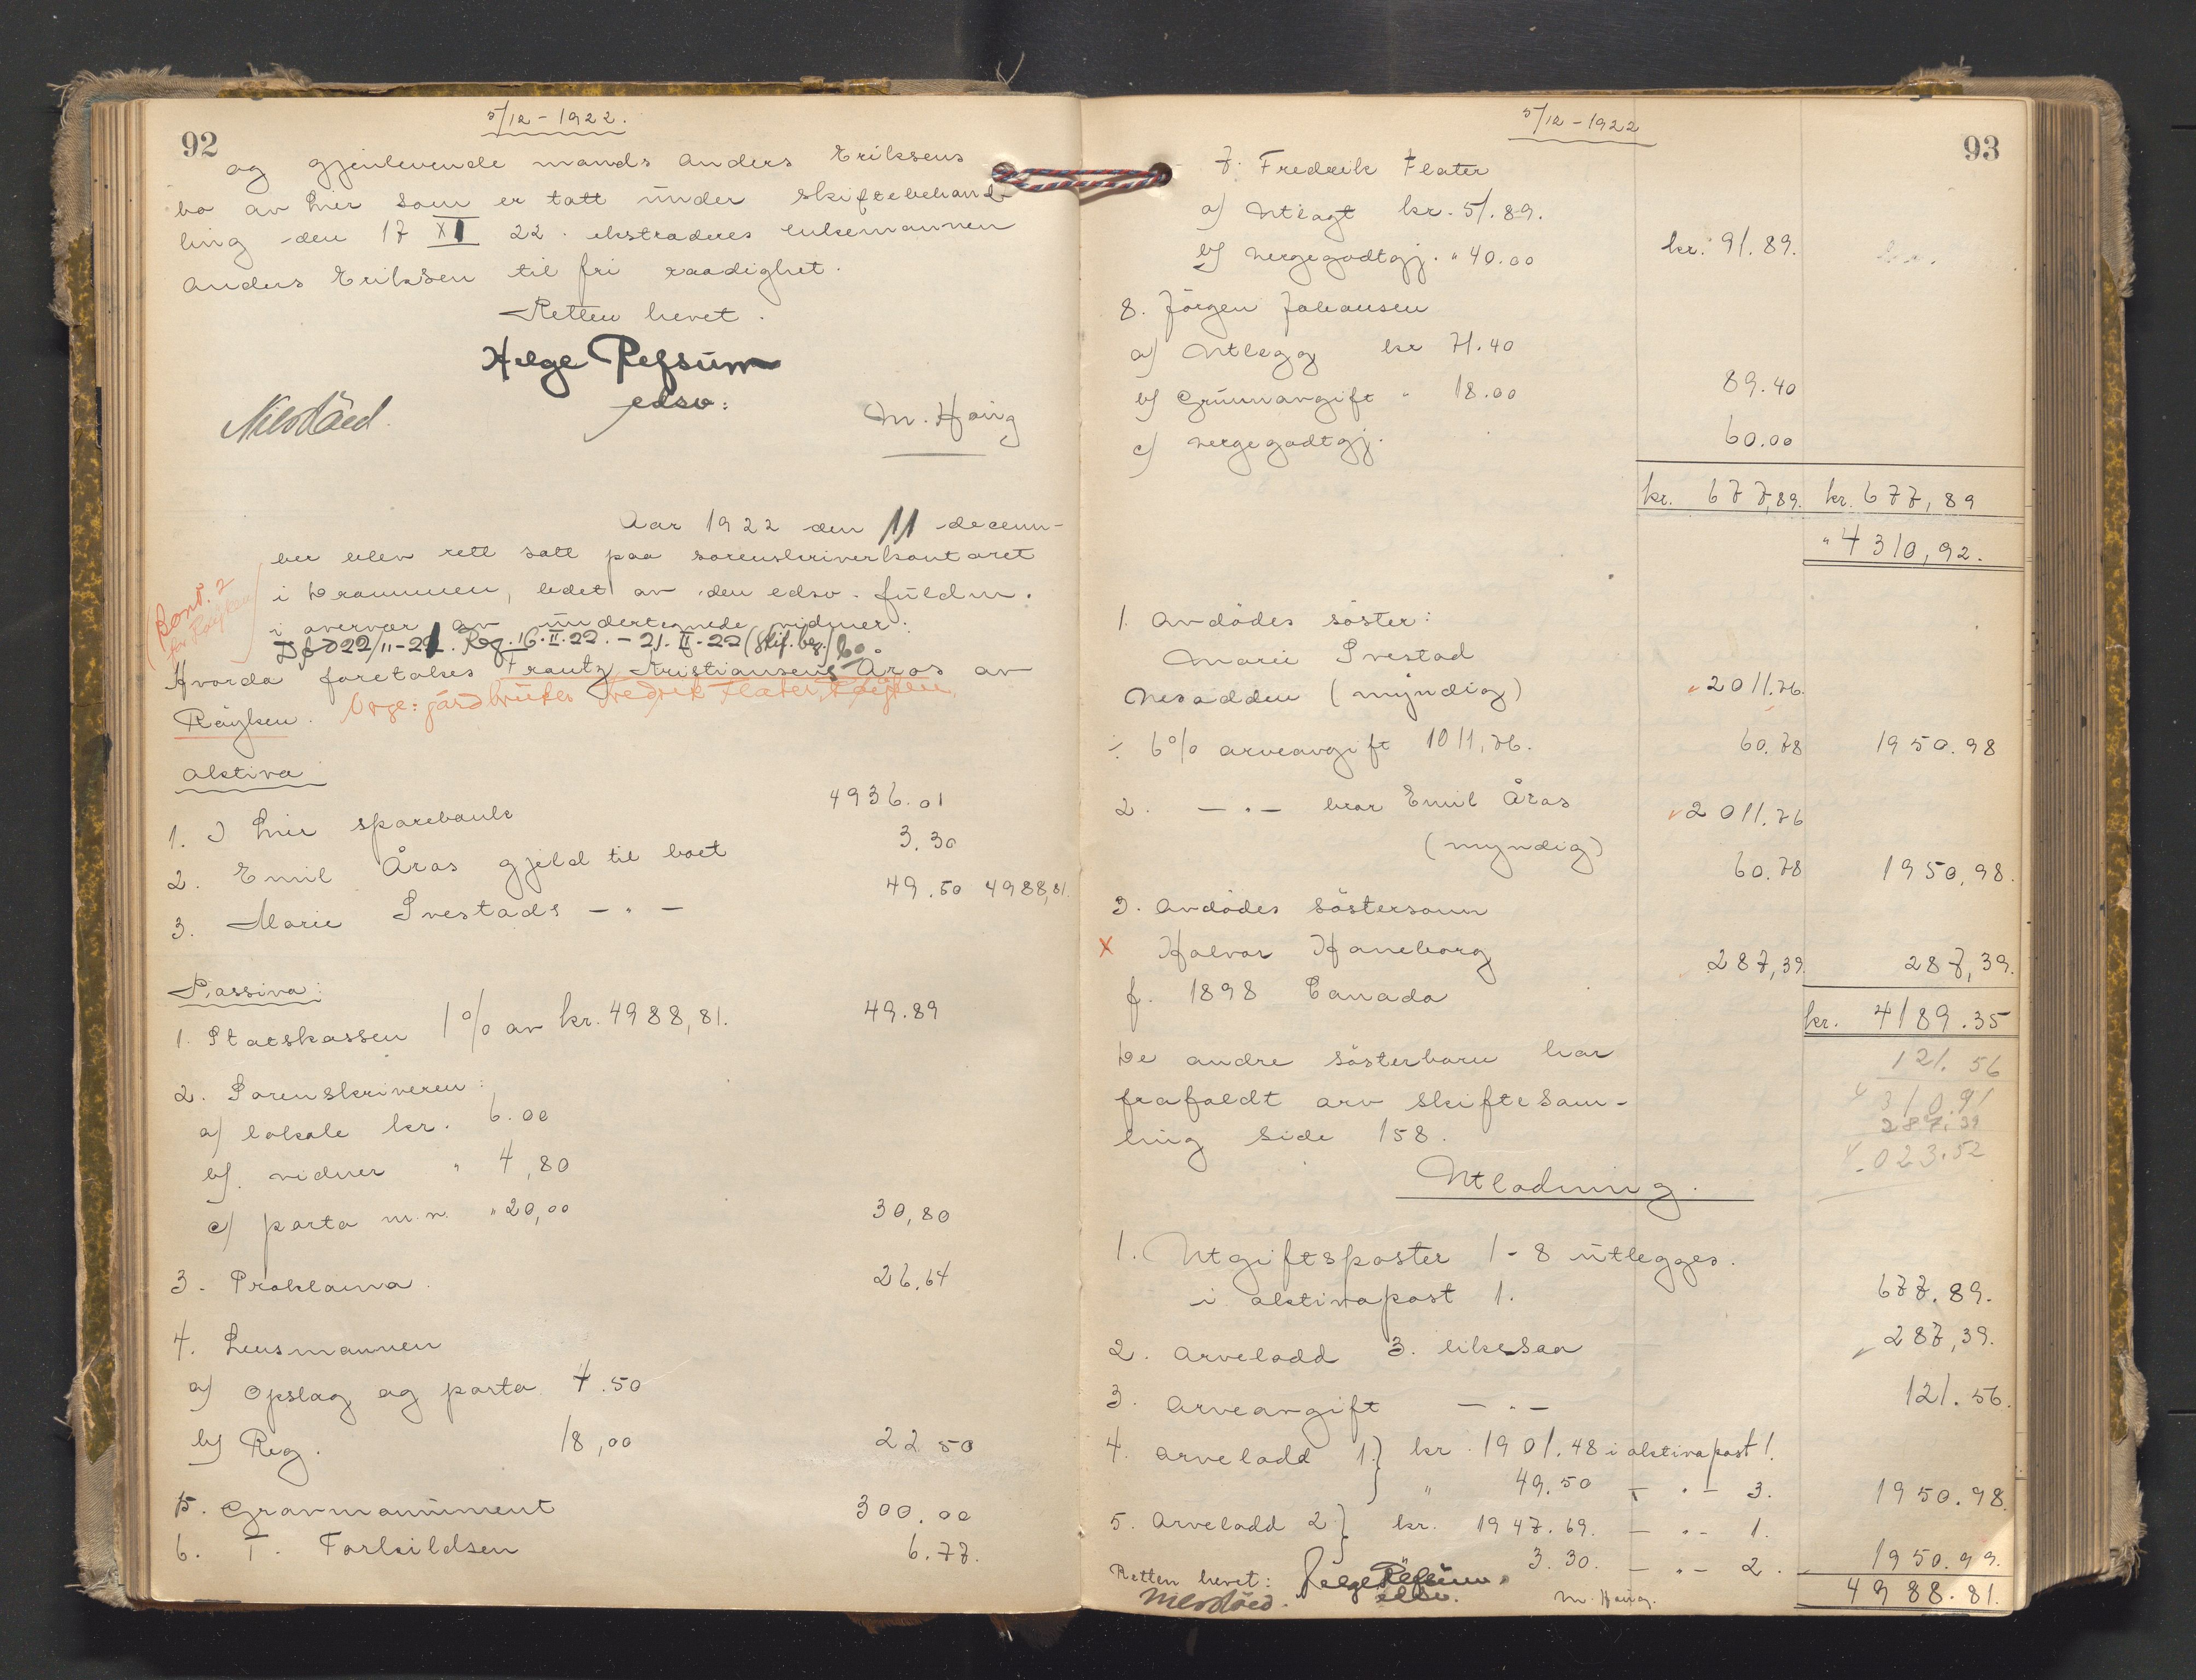 92
5/12 - 1922.
og gjenlevende mands Anders Eriksens
bo av Lier som er tatt under skiftebehand-
ling den 17 XI 22. ekstraderes enkemannen
Anders Eriksen til fri raadighet.
Retten hevet.
Helge Refsum
edsv:
M. Haug
Aar 1922 den 11 decem-
ber blev rett satt paa sorenskriverkontoret
i Drammen, ledet av den edsv. fuldm.
i overvær av undertegnede vidner:
Død 22/11-21. Reg. 16.II.22. - 21.II-22 (skif. beg.) bo.
Hvorda foretokes Frantz Kristiansens Åros av
Røyken. Verge: gårdbruker Fredrik Flater, Røyken.
Aktiva
1. I Lier sparebank 4936.01
2. Emil Åros gjeld til boet 3.30
3. Marie Svestads - " - 49.50 4988,81.
Passiva:
1. Statskassen 1% av kr. 4988,81. 49.89
2. Sorenskriveren:
a) lokale kr. 6.00
b) vidner " 4,80
c) porto m.v. " 20,00 30,80
3. Proklama. 26.64
4. Lensmannen
a) Opslag og porto. 4.50
b) Reg. 18,00 22.50
5. Gravmonument 300.00
6. T. Torkildsen 6.77.
93
5/12 - 1922
7. Fredrik Flater
a) Utlagt kr. 51.89.
b) Vergegodtgj. " 40.00 kr. 91.89.
8. Jörgen Johansen
a) Utlegg kr 71.40
b) Grunnavgift " 18.00 89.40
c) Vergegodtgj. 60.00
kr. 677,89. kr. 677,89
" 4310,92.
1. Avdödes söster:
Marie Svestad
Nesodden (myndig) 2011.76.
÷ 6% arveavgift 1011,76. 60.78 1950.98
2. - " - bror Emil Åros 2011.76
(myndig)
60.78 1950,98.
3. Avdödes söstersonn
x Halvor Haneborg 287,39. 287,39.
f. 1898 Canada
kr. 4189.35
De andre sösterbarn har 121.56
frafaldt arv skiftesam- 4310.91
287.39
ling side 158. 4.023.52
Utlodning.
1. Utgiftsposter 1-8 utlegges.
i aktivapost 1. 677.89.
2. Arvelodd 3. likesaa 287,39.
3. Arveavgift - " - 121.56.
4. Arvelodd 1.} kr. 1901.48 i aktivapost 1.
" 49.50 - " - 3. 1950.98.
5. Arvelodd 2} kr. 1947.69. - " - 1.
3.30. - " - 2. 1950.99.
Retten hevet: Helge Refsum edsv. M. Haug. 4988.81.